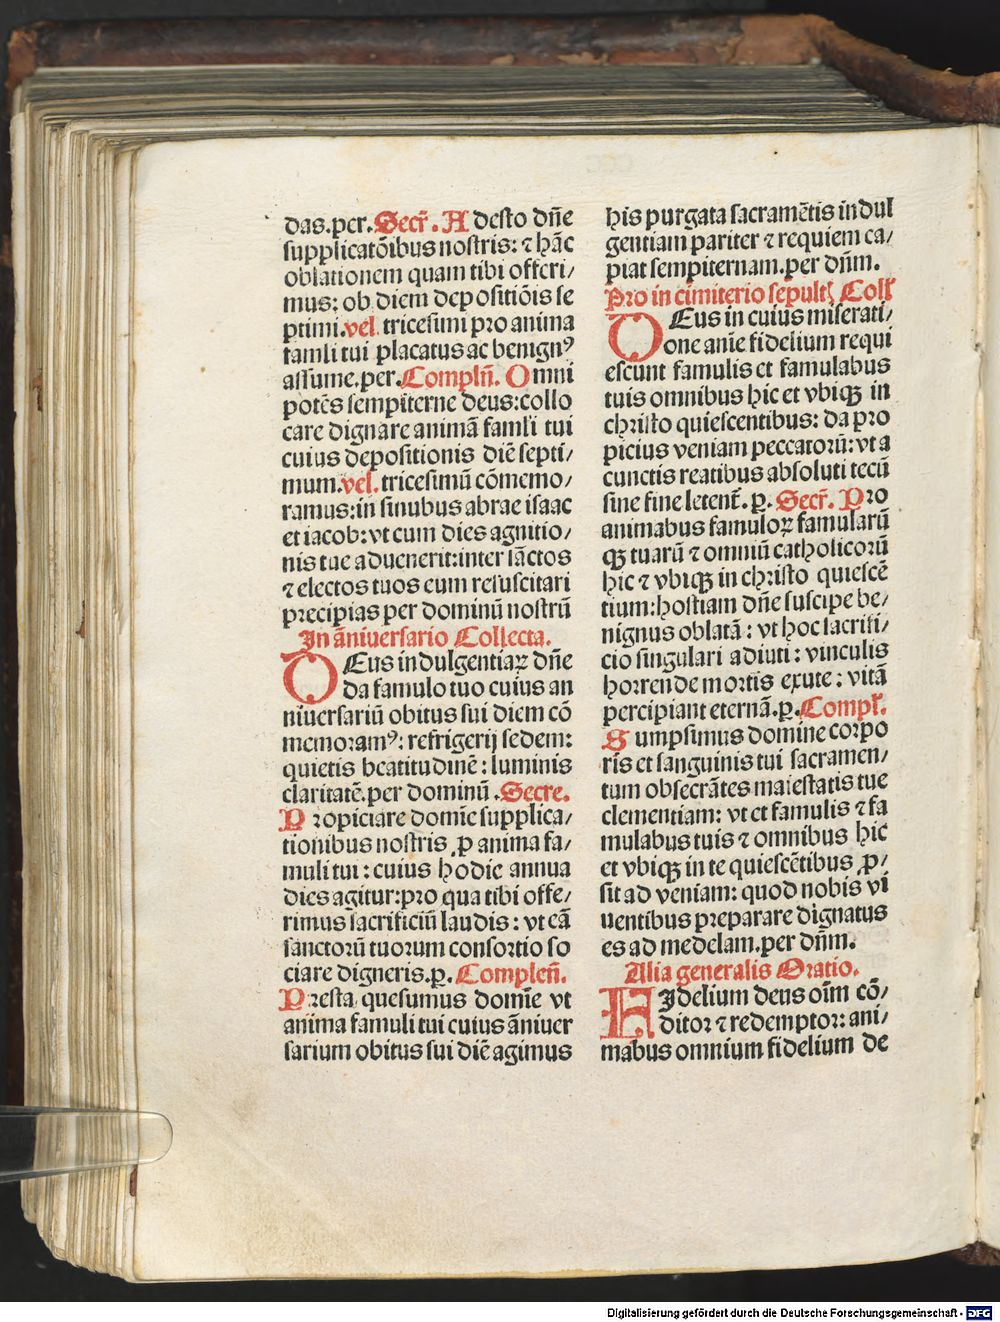 das.per. Secr̃. Adesto dñe
supplicatõibus nostris: ⁊ hãc
oblationem quam tibi offeri/
mus: ob diem depositiõis se
ptimi.vel. tricesimi pro anima
famli tui placatus ac benignꝰ
assume.per. Complñ. Omni
potẽs sempiterne deus:collo
care dignare animã famli tui
cuius depositionis diẽ septi/
mum.vel. tricesimũ cõmemo/
ramus:in sinubus abrae isaac
et iacob:vt cum dies agnitio/
nis tue aduenerit:inter sãctos
⁊ electos tuos eum resuscitari
precipias per dominũ nostrũ
In ãniuersario Collecta.
DEus indulgentiaꝝ dñe
da famulo tuo cuius an
niuersariũ obitus sui diem cõ
memoramꝰ: refrigerij sedem:
quietis beatitudinẽ: luminis
claritatẽ.per dominũ. Secre.
Propiciare domie supplica/
tionibus nostris ꝓ anima fa/
muli tui: cuius hodie annua
dies agitur:pro qua tibi offe/
rimus sacrificiũ laudis: vt eã
sanctorũ tuorum consortio so
ciare digneris.p. Compleñ.
Presta quesumus domie vt
anima famuli tui cuius ãniuer
sarium obitus sui diẽ agimus
his purgata sacramẽtis indul
gentiam pariter ⁊ requiem ca/
piat sempiternam.per dñm.
Pro in cimiterio sepultꝭ Coll̃
DEus in cuius miserati/
one anie fidelium requi
escunt famulis et famulabus
tuis omnibus hic et vbiqꝫ in
christo quiescentibus: da pro
picius veniam peccatorũ: vt a
cunctis reatibus absoluti tecũ
sine fine letent̃. p. Secr̃. Pro
animabus famuloꝝ famularũ
qꝫ tuarũ ⁊ omniũ catholicorũ
hic ⁊ vbiqꝫ in christo quiescẽ
tium:hostiam dñe suscipe be/
nignus oblatã: vt hoc sacrifi/
cio singulari adiuti: vinculis
horrende mortis exute: vitã
percipiant eternã.p. Compl̃.
Sumpsimus domine corpo
ris et sanguinis tui sacramen/
tum obsecrãtes maiestatis tue
clementiam: vt et famulis ⁊ fa
mulabus tuis ⁊ omnibus hic
et vbiqꝫ in te quiescẽtibus ꝓ/
sit ad veniam: quod nobis vi
uentibus preparare dignatus
es ad medelam.per dñm.
Alia generalis Oratio.
FIdelium deus oĩm cõ/
ditor ⁊ redemptor: ani/
mabus omnium fidelium de
Digitalisierung gefördert durch die Deutsche Forschungsgemeinschaft - DFG